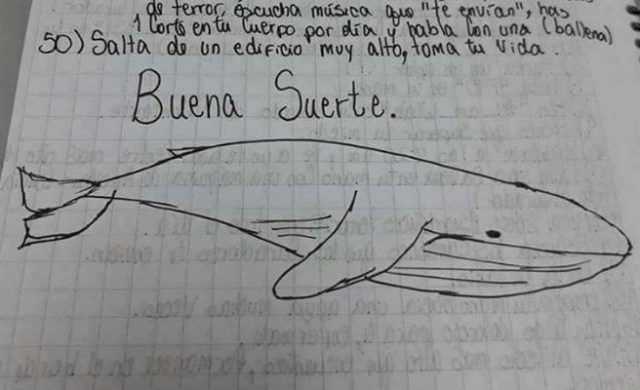 de terror, escucha música que "te envían", has
1 corte en tu cuerpo por día y habla con una (ballena)
50) Salta de un edificio muy alto, toma tu vida.
Buena Suerte.